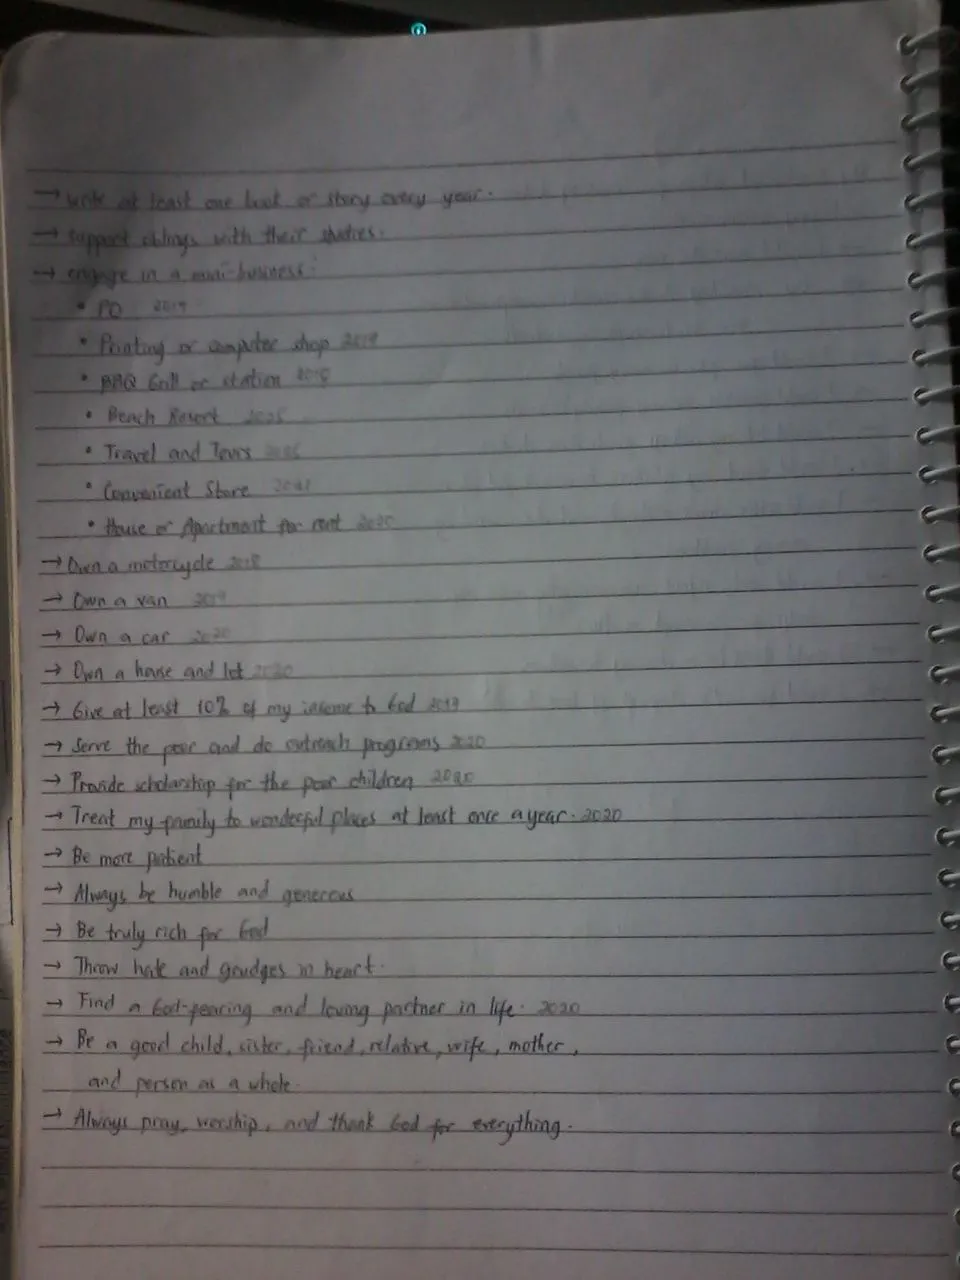 → write at least one book or story every year.
→ support siblings with their studies.
→ engage in a mini-business:
• PO 2019
• Printing or computer shop 2019
• BBQ Grill or station
• Beach Resort 2025
• Travel and Tours
• Convenient Store
• House or Apartment for rent 2020
→ Own a motorcycle 2018
→ Own a van 2019
→ Own a car 2020
→ Own a house and lot 2020
→ Give at least 10% of my income to God 2019
→ Serve the poor and do outreach programs 2020
→ Provide scholarship for the poor children 2020
→ Treat my family to wonderful places at least once a year. 2020
→ Be more patient
→ Always be humble and generous
→ Be truly rich for God
→ Throw hate and grudges in heart.
→ Find a God-fearing and loving partner in life. 2020
→ Be a good child, sister, friend, relative, wife, mother,
and person as a whole.
→ Always pray, worship, and thank God for everything.